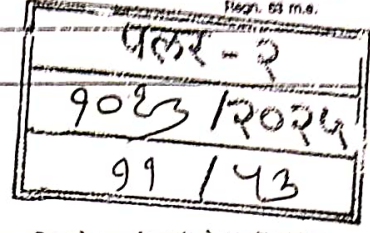 Regn. 63 m.e.
पलर - २
/२०२५
११ / ५३